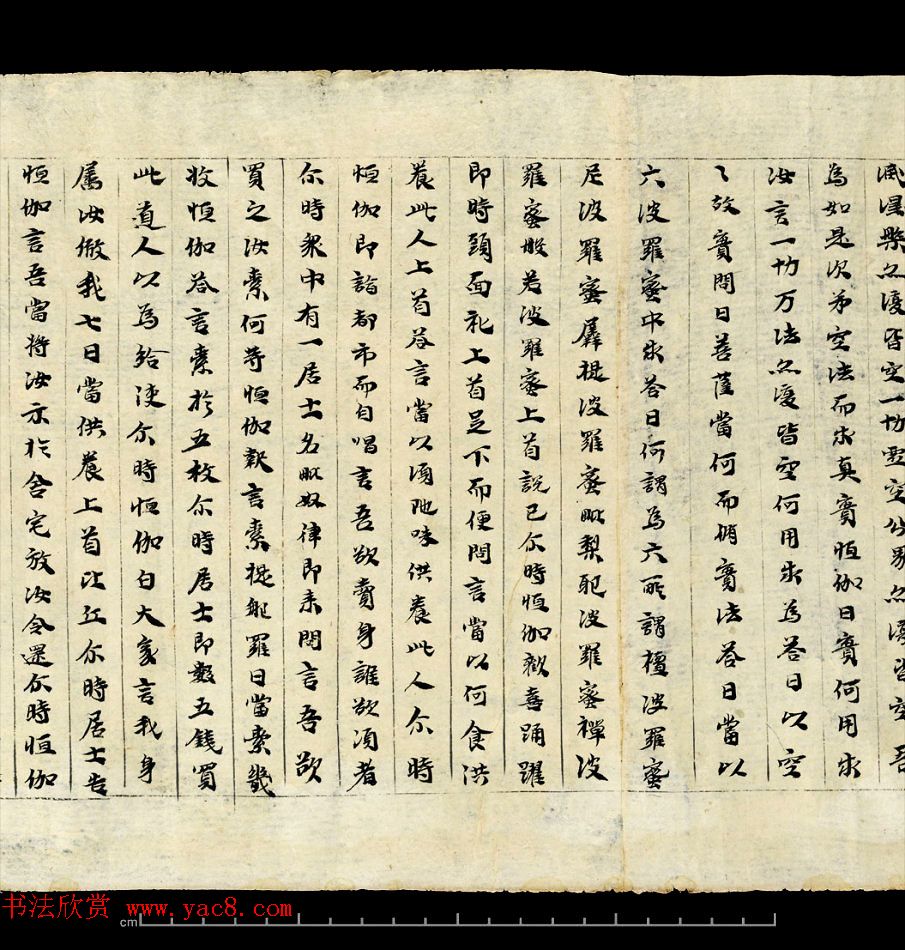 復皆空一切虛空公界無復皆空吾
為如是次弟空法而求真實恒伽曰實何用求
汝言一切万法無復皆空何用求為荅曰以空
〻故實問曰菩薩當何而脩實法荅曰當以
六波羅蜜中求荅曰何謂為六所謂檀波羅蜜
尼波羅蜜羼提波羅蜜毗梨耶波羅蜜禪波
羅蜜般若波羅蜜上首說已尒時恒伽歡喜踊躍
即時頭面礼上首足下而便問言當以何食洪
養此人上首荅言當以須陁味供養此人尒時
恒伽即詣都市而自唱言吾欲賣身誰欲湏者
尒時衆中有一居士名毗奴律即来問言吾欲
買之汝索何等恒伽報言索提舵羅曰當索幾
枚恒伽荅言索於五枚尒時居士即數五錢買
此道人以為給使尒時恒伽白大家言我身
属汝放我七日當供養上首比丘尒時居士告
恒伽言吾當將汝示於舍宅放汝令還尒時恒伽
书法欣赏 www.yac8.com
cm